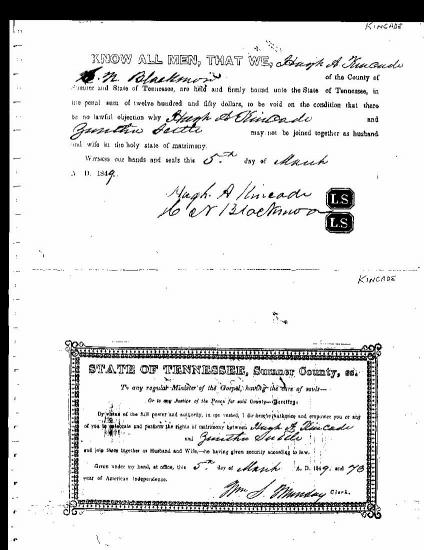 KINCADE
KNOW ALL MEN, THAT WE, Hugh A Kincade
N Blackmon of the County of
Sumner and State of Tennessee, are held and firmly bound unto the State of Tennessee, in
the penal sum of twelve hundred and fifty dollars, to be void on the condition that there
be no lawful objection why Hugh A Kincade and
may not be joined together as husband
and wife in the holy state of matrimony.
Witness our hands and seals this 5th day of March
A. D. 1849.
Hugh. A Kincade L S
N Blackmon L S
KINCADE
STATE OF TENNESSEE, Sumner County, ss.
To any regular Minister of the Gospel, having the care of souls—
Or to any Justice of the Peace for said County—Greeting:
By virtue of the full power and authority, in me vested, I do hereby authorize and empower you or any
of you to celebrate and perform the rights of matrimony between Hugh A Kincade
and
and join them together as Husband and Wife,—he having given security according to law.
Given under my hand, at office, this 5th day of March A. D. 1849. and 73
year of American Independence.
Wm S. Munday Clerk.